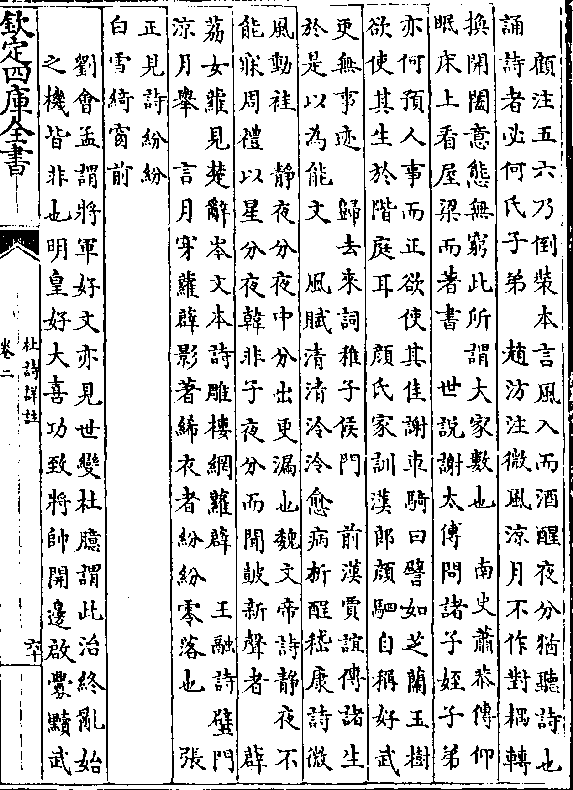 顧注五六乃倒裝本言風入而酒醒夜分猶聽詩也
誦詩者必何氏子弟　趙汸注微風涼月不作對耦轉
換開闔意態無窮此所謂大家數也　南史蕭恭傳仰
眠床上看屋梁而著書　世說謝太傅問諸子姪子弟
亦何預人事而正欲使其佳謝車騎曰譬如芝蘭玉樹
欲使其生於階庭耳　顔氏家訓漢郎顔駟自稱好武
更無事迹　歸去來詞稚子候門　前漢賈誼傳諸生
於是以為能文　風賦清清泠泠愈病析酲嵇康詩微
風動袿　静夜分夜中分出更漏也魏文帝詩静夜不
能寐周禮以星分夜韓非子夜分而聞皷新聲者　薜
荔女蘿見楚辭岑文本詩雕樓網蘿薜　王融詩璧門
涼月舉　言月穿蘿薜影著絺衣者紛紛零落也　張
正見詩紛紛
白雪綺窗前
劉會孟謂將軍好文亦見世變杜臆謂此治終亂始
之機皆非也明皇好大喜功致將帥開邊啟釁黷武
欽定四庫全書
杜詩詳註
卷二
六十